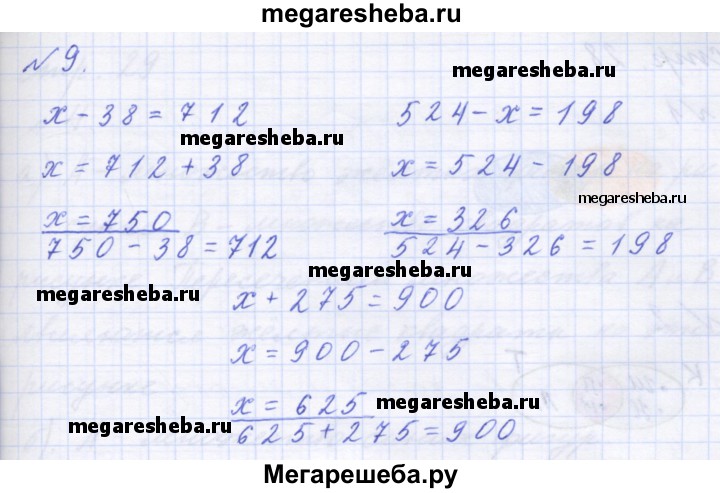 megaresheba.ru
№ 9.
megaresheba.ru
x - 38 = 712
524 - x = 198
megaresheba.ru
x = 712 + 38
x = 524 - 198
megaresheba.ru
x = 750
x = 326
750 - 38 = 712
524 - 326 = 198
megaresheba.ru
megaresheba.ru
x + 275 = 900
x = 900 - 275
x = 625
megaresheba.ru
megaresheba.ru
625 + 275 = 900
Мегарешеба.ру